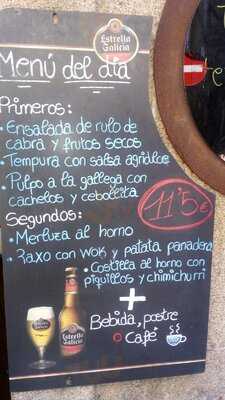 Estrella
Galicia
Menú del día
Primeros:
• Ensalada de rulo de
cabra y frutos secos
• Tempura con salsa agridulce
• Pulpo a la gallega con
cachelos y cebollita
11'5€
Segundos:
• Merluza al horno
• Raxo con wok y patata panadera
• Costilla al horno con
piquillos y chimichurri
+
Bebida, postre
o Café
Estrella
Galicia